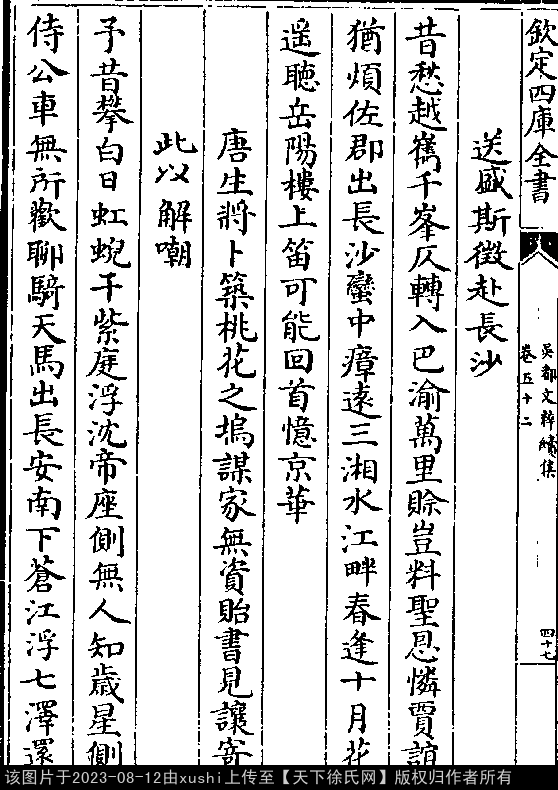 欽定四庫全書
吳都文粹續集
卷五十二
四十七
送盛斯徵赴長沙
昔愁越嶲千峯仄轉入巴渝萬里賒豈料聖恩憐賈誼
猶煩佐郡出長沙蠻中瘴遠三湘水江畔春逢十月花
遥聽岳陽樓上笛可能回首憶京華
唐生將卜築桃花之塢謀家無資貽書見讓寄
此以解嘲
予昔攀白日虹蜺干紫庭浮沈帝座側無人知歲星側
侍公車無所歡聊騎天馬出長安南下蒼江浮七澤還
该图片于2023-08-12由xushi上传至【天下徐氏网】版权归作者所有